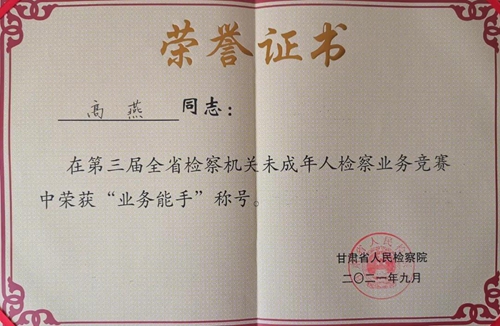 荣誉证书
高燕 同志：
在第三届全省检察机关未成年人检察业务竞赛
中荣获“业务能手”称号。
甘肃省人民检察院
二〇二一年九月